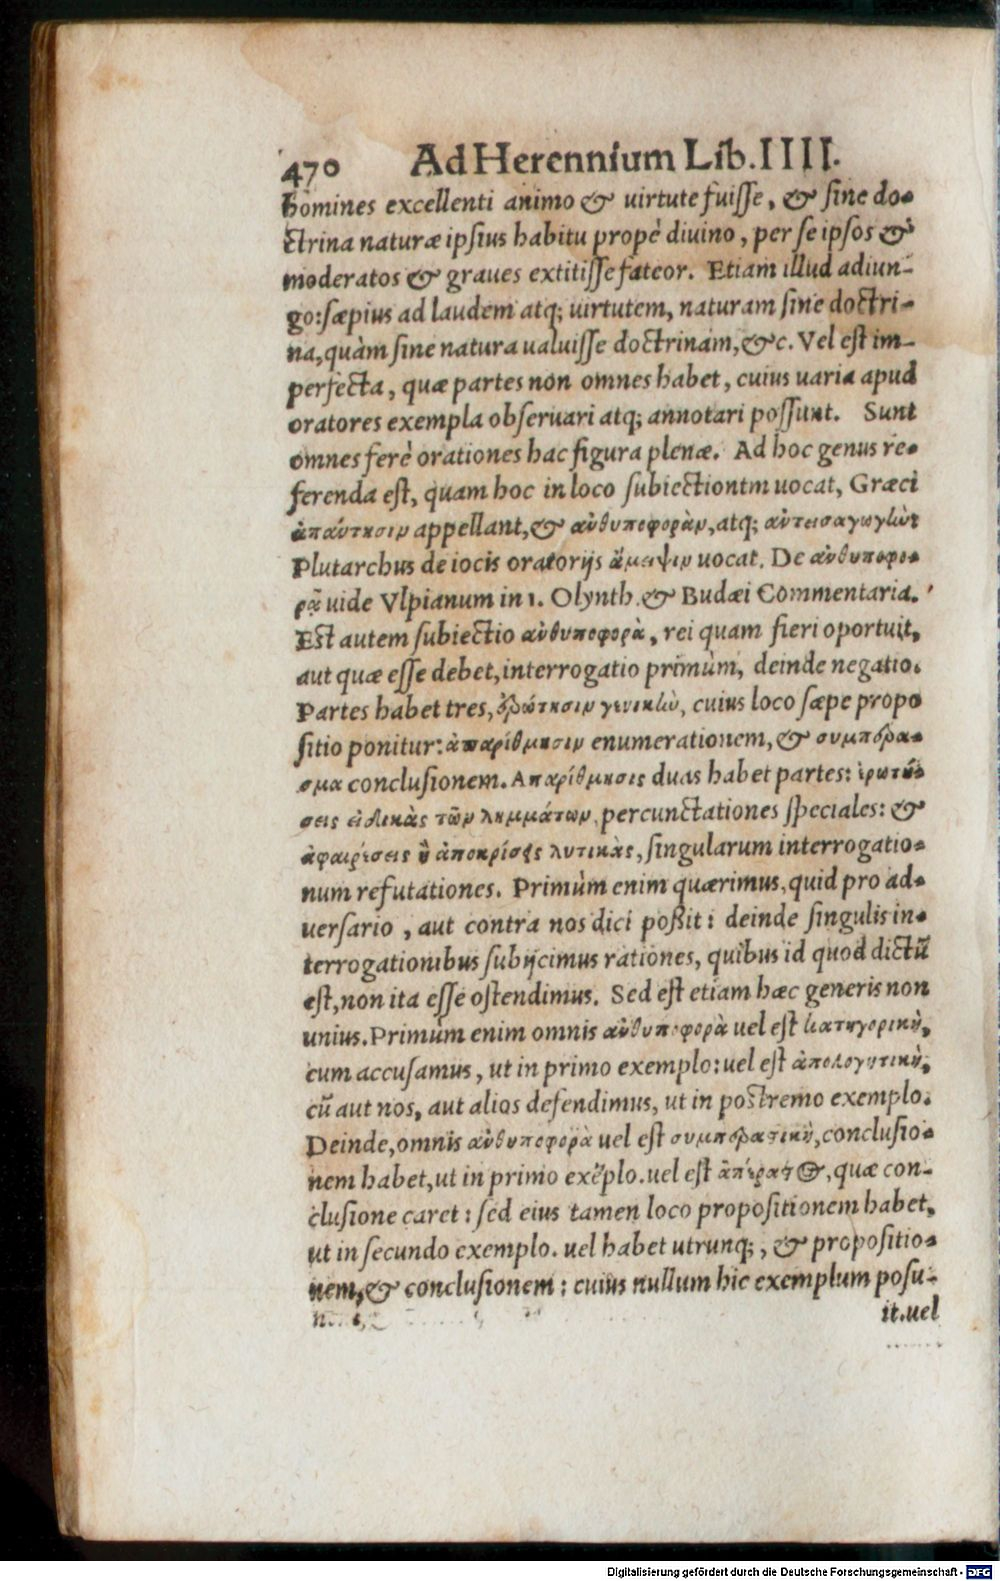 470 Ad Herennium Lib. IIII.
homines excellenti animo & uirtute fuisse, & sine do-
ctrina naturæ ipsius habitu propè diuino, per se ipsos &
moderatos & graues extitisse fateor. Etiam illud adiun-
go: sæpius ad laudem atq; uirtutem, naturam sine doctri-
na, quàm sine natura ualuisse doctrinam, &c. Vel est im-
perfecta, quæ partes non omnes habet, cuius uaria apud
oratores exempla obseruari atq; annotari possunt. Sunt
omnes ferè orationes hac figura plenæ. Ad hoc genus re-
ferenda est, quam hoc in loco subiectiontm uocat, Græci
ἀπαύτησιν appellant, & ἀνθυποφορὰν, atq; ἀντεισαγωγὴν
Plutarchus de iocis oratorijs ἄμειψιν uocat. De ἀνθυποφο-
ρᾷ uide Vlpianum in 1. Olynth. & Budæi Commentaria.
Est autem subiectio ἀνθυποφορὰ, rei quam fieri oportuit,
aut quæ esse debet, interrogatio primùm, deinde negatio.
Partes habet tres, ἐρώτησιν γενικὴν, cuius loco sæpe propo
sitio ponitur: ἀπαρίθμησιν enumerationem, & συμπέρα-
σμα conclusionem. Απαρίθμησις duas habet partes: ἐρωτή-
σεις εἰδικὰς τῶν λημμάτων, percunctationes speciales: &
ἀφαιρέσεις ἢ ἀποκρίσεις λυτικὰς, singularum interrogatio-
num refutationes. Primùm enim quærimus, quid pro ad-
uersario, aut contra nos dici poßit: deinde singulis in-
terrogationibus subijcimus rationes, quibus id quod dictũ
est, non ita esse ostendimus. Sed est etiam hæc generis non
unius. Primùm enim omnis ἀνθυποφορὰ uel est κατηγορικὴ,
cum accusamus, ut in primo exemplo: uel est ἀπολογητικὴ,
cũ aut nos, aut alios defendimus, ut in postremo exemplo.
Deinde, omnis ἀνθυποφορὰ uel est συμπερατικὴ, conclusio-
nem habet, ut in primo exẽplo. uel est ἀπέρατος, quæ con-
clusione caret: sed eius tamen loco propositionem habet,
ut in secundo exemplo. uel habet utrunq;, & propositio-
nem, & conclusionem: cuius nullum hic exemplum posu-
it. uel
Digitalisierung gefördert durch die Deutsche Forschungsgemeinschaft - DFG